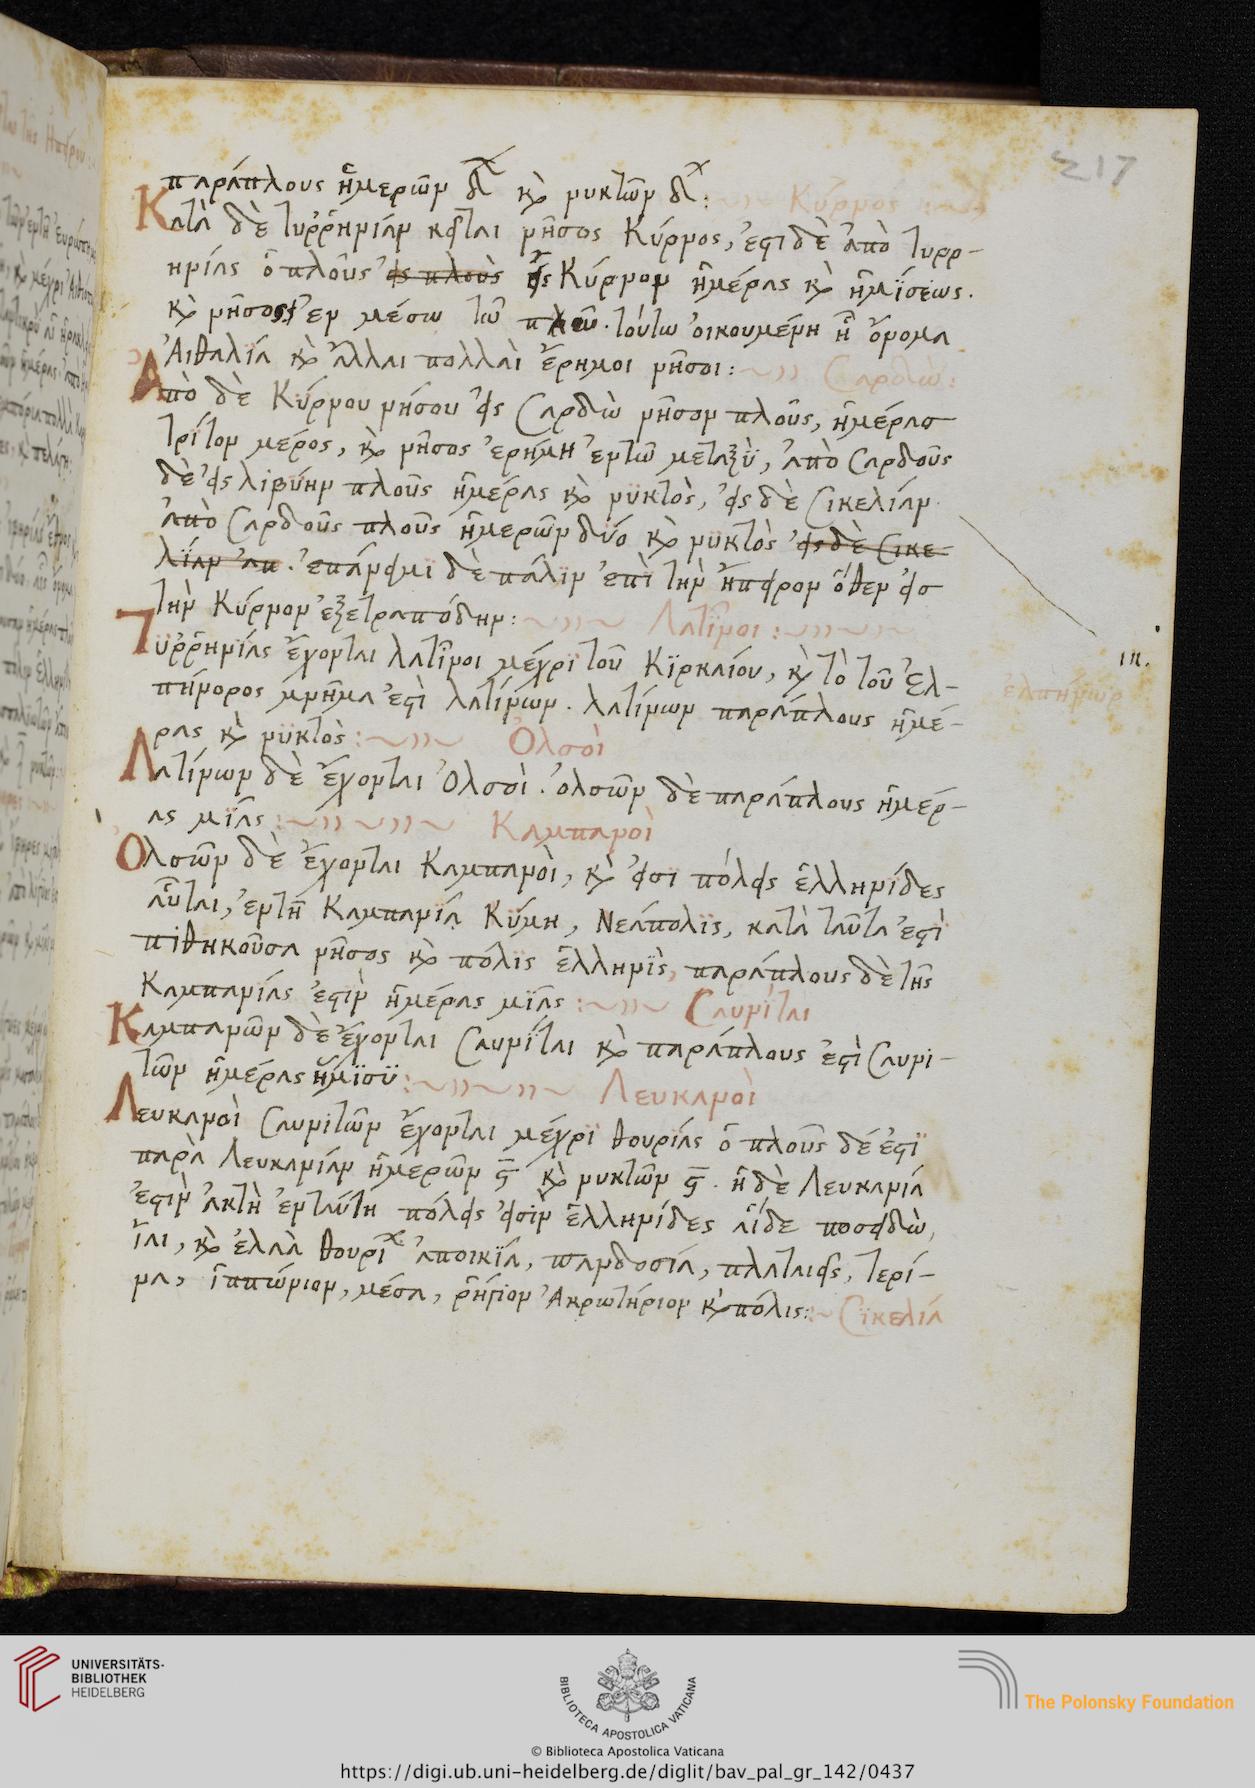 217
παράπλους ἡμερῶν δ̅ κὶ νυκτῶν δ̅: Κύρνος
Κατὰ δὲ τυῤῥηνίαν κεῖται νῆσος Κύρνος, ἐστι δὲ ἀπὸ τυρρ-
ηνίας ὁ πλοῦς εἰς πλοὺς εἰς Κύρνον ἡμέρας κὶ ἡμϊσέως.
κὶ νῆσος ἐν μέσω τῶ πλῶ τούτω οἰκουμένη ἧ ὄνομα
Ἀιθαλία κὶ ἄλλαι πολλαὶ ἔρημοι νῆσοι: Σαρδὼ:
Ἀπὸ δὲ Κύρνου νήσου εἰς Σαρδὼ νῆσον πλοῦς, ἡμέρασ
τρίτον μέρος, κὶ νῆσος ἐρήμη ἐντῶ μεταξὺ, ἀπὸ Σαρδοῦς
δὲ εἰς λιβύην πλοῦς ἡμέρας κὶ νϋκτὸς, εἰς δὲ Σικελίαν
ἀπὸ Σαρδοῦς πλοῦς ἡμερῶν δύο κὶ νϋκτὸς εἰς δὲ Σικε
λίαν ἀπ. ἐπάνειμϊ δὲ πάλϊν ἐπὶ τὴν ἤπειρον ὅθεν εἰσ
τὴν Κύρνον ἐξετραπόδην: Λατῖνοι:
Τϋῤῥηνϊας ἔχονται λατῖνοι μέχρϊ τοῦ Κϊρκαίου, κὶ τὸ τοῦ ἐλ-
m.
ἐλπήνωρ
πήνορος μνῆμα ἐστὶ λατίνων. λατίνων παράπλους ἡμέ-
ρας κὶ νϋκτὸς: Ὀλσοὶ
Λατίνων δὲ ἔχονται Ὀλσοὶ. ὀλσῶν δὲ παράπλους ἡμέρ-
ας μϊᾶς: Καμπανοὶ
Ὀλσῶν δὲ ἔχονται Καμπανοὶ, κὶ εἰσϊ πόλεις ἑλληνίδες
αὗται, ἐντῇ Καμπανϊα Κϋμη, Νεάπολϊς, κατὰ ταῦτα ἐστὶ
πιθηκοῦσα νῆσος κὶ πόλϊς ἑλληνϊς, παράπλους δὲ τῆς
Καμπανίας ἐστὶν ἡμέρας μϊᾶς: Σαυνῖται
Καμπανῶν δὲ ἔχονται Σαυνῖται κὶ παράπλους ἐστὶ Σαυνι-
τῶν ἡμέρας ἥμϊσϋ: Λευκανοὶ
Λευκανοὶ Σαυνιτῶν ἔχονται μέχρϊ θουρίας ὁ πλοῦς δέ ἐστϊ
παρὰ Λευκανίαν ἡμερῶν ϛ̅ κὶ νυκτῶν ϛ̅. ἡ δὲ Λευκανία
ἐστὶν ἀκτὴ ἐνταύτη πόλεις εἰσὶν ἑλληνίδες αἵδε ποσειδὼ,
ϊαι, κὶ ἐλαὰ θουρί ἀποικϊα, πανδοσία, πλαταιεῖς, τερί-
να, ἱππώνιον, μέσα, ῥήγιον Ἀκρωτήριον κὶ πόλις: Σϊκελία
UNIVERSITÄTS-
BIBLIOTHEK
HEIDELBERG
BIBLIOTECA APOSTOLICA VATICANA
The Polonsky Foundation
© Biblioteca Apostolica Vaticana
https://digi.ub.uni-heidelberg.de/diglit/bav_pal_gr_142/0437